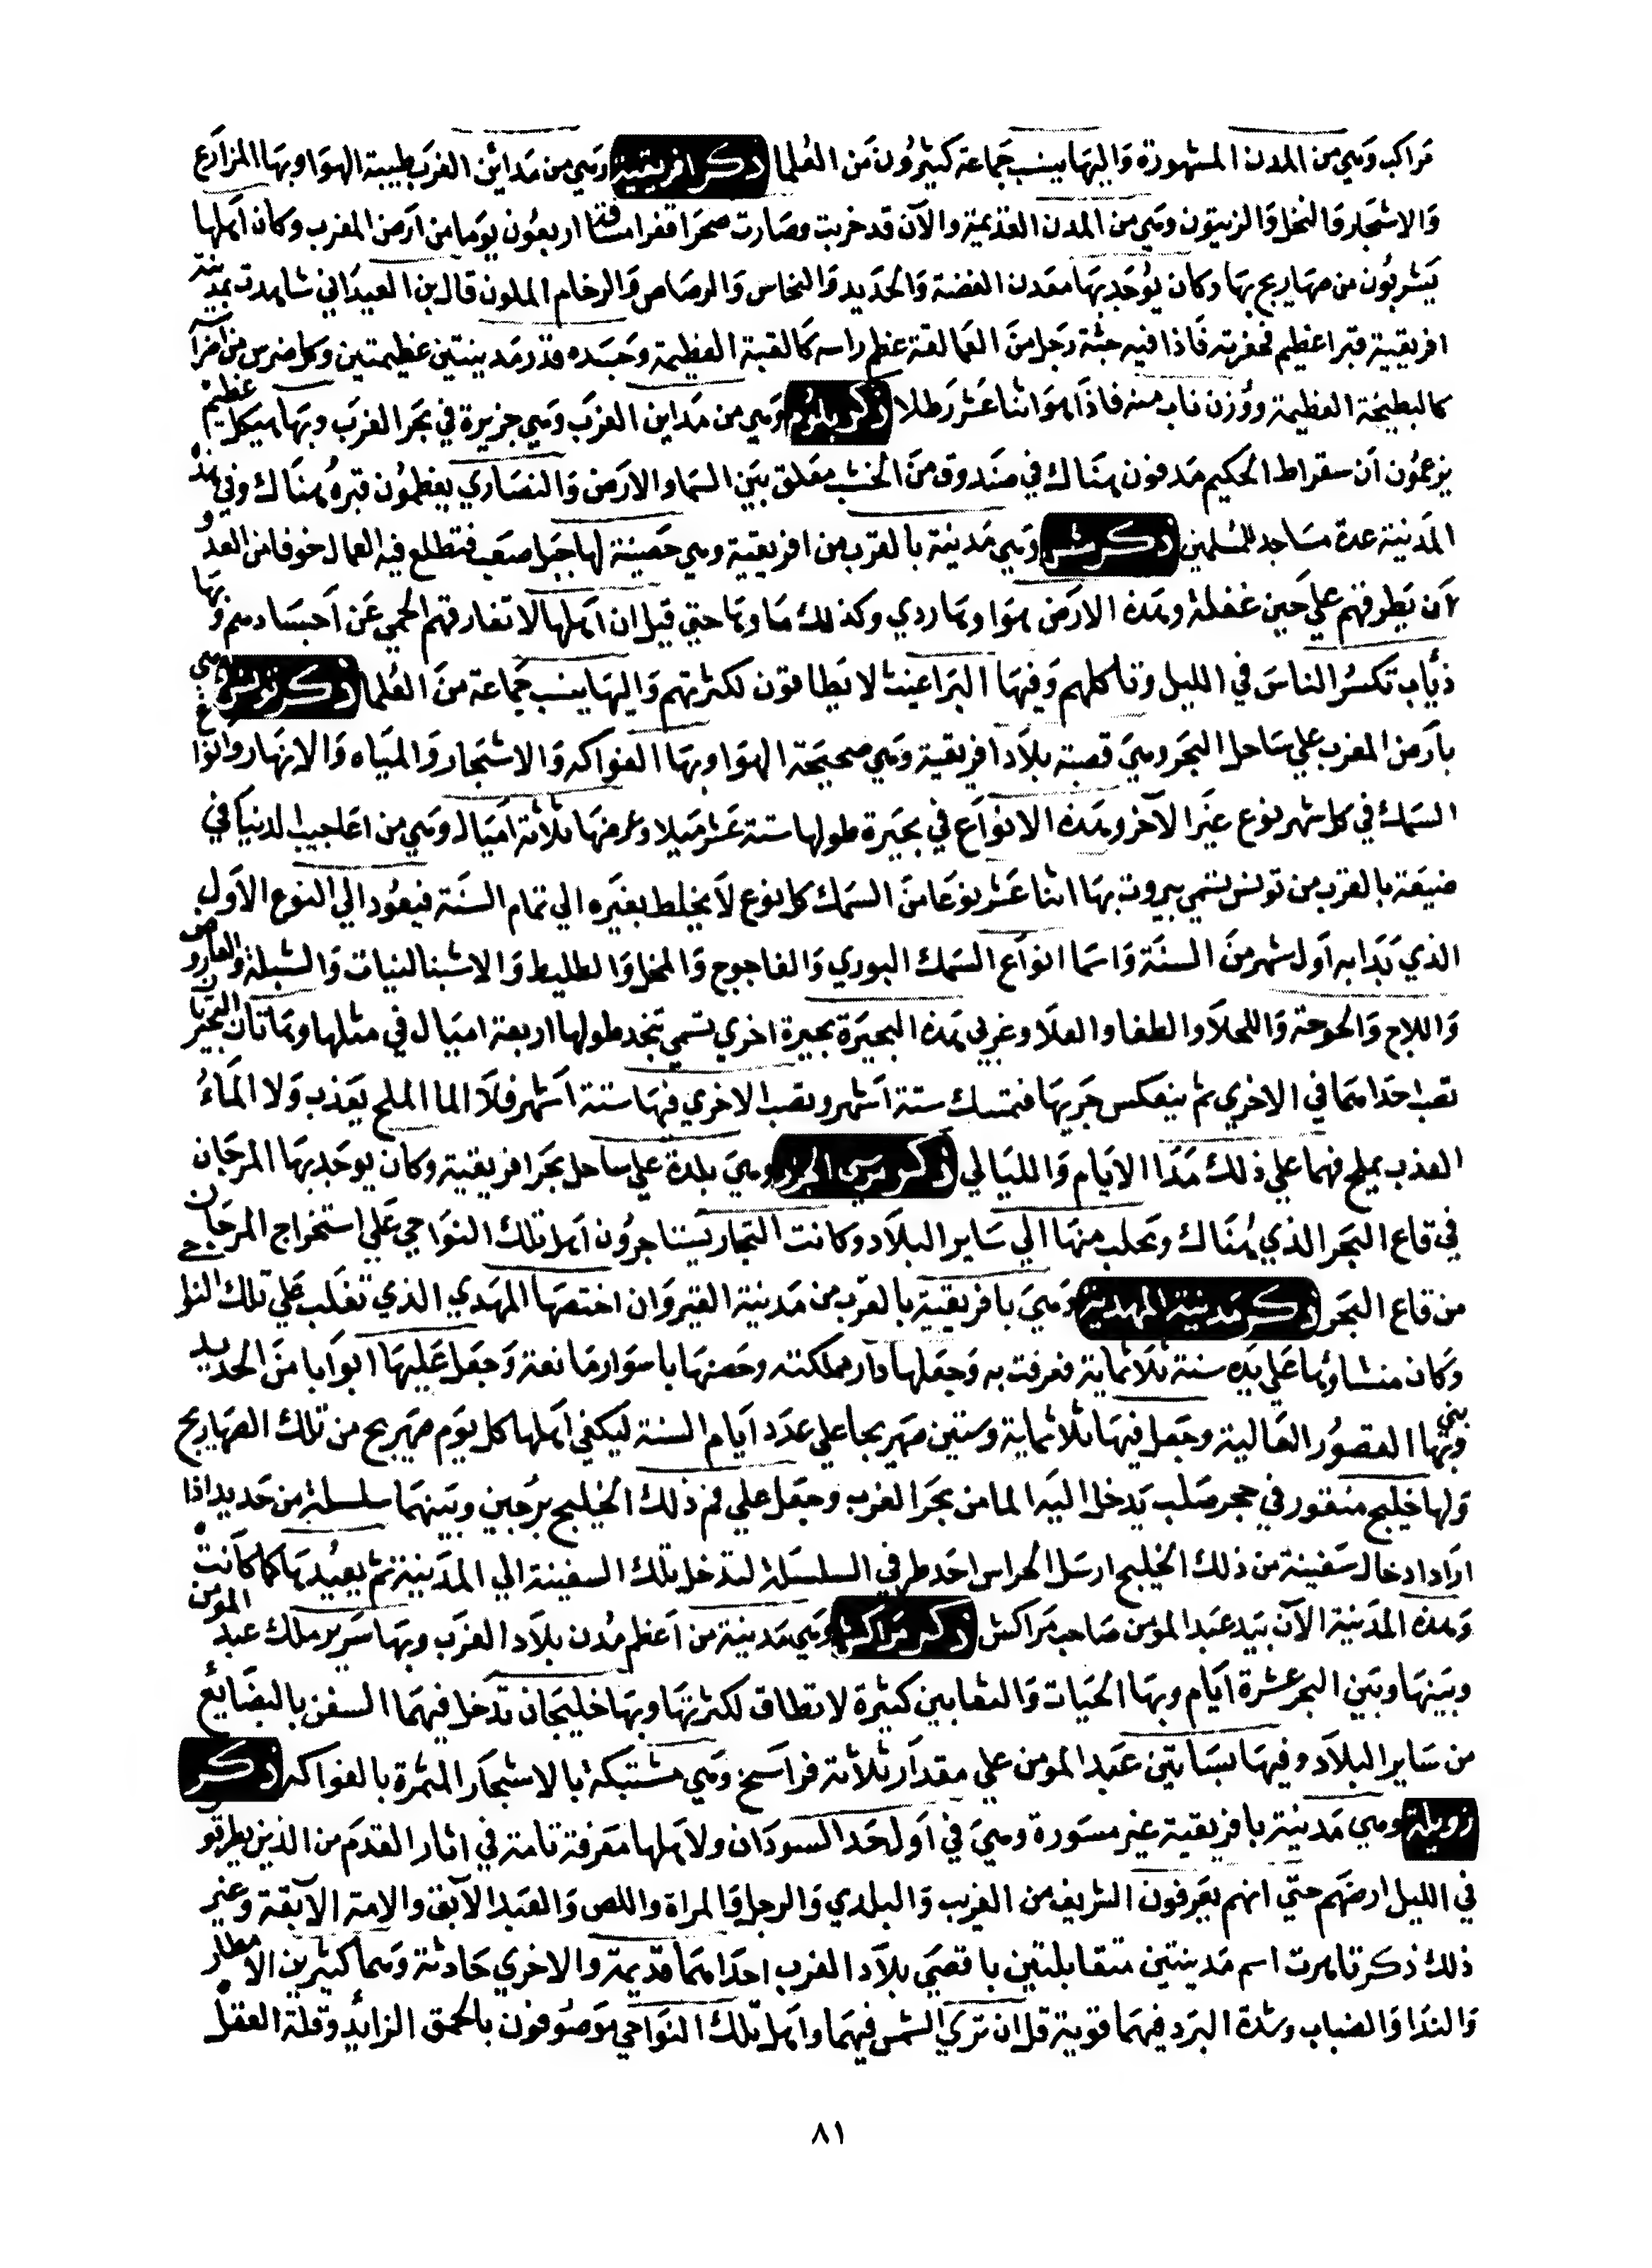 مراكب وهي من المدن المشهورة واليها ينسب جماعة كثيرون من العلما ذكر افريقية وهي من مداين الغرب طيبة الهوا وبها المزارع
والاشجار والنخل والزيتون وهي من المدن القديمة والآن قد خربت وصارت صحرا قفرا مسافتها اربعون يوما من أرض المغرب وكان اهلها
يشربون من صهاريج بها وكان يوجد بها معدن الفضة والحديد والنحاس والرصاص والرخام الملون قال بن العيداني شاهدت بمدينة
افريقية قبرا عظيم فحفرته فاذا فيه جثة رجل من العمالقة عظم راسه كالقبة العظيمة وجسده قدر مدينتين عظيمتين وكل ضرس من اضراسه
كالبطيخة العظيمة ووزن ناب منه فاذا هو اثنا عشر رطلا ذكر وهي من مداين الغرب وهي جزيرة في بحر الغرب وبها هيكل عظيم
يزعمون أن سقراط الحكيم مدفون هناك في صندوق من الخشب معلق بين السما والارض والنصاري يعظمون قبره هناك وفي هذه
المدينة عدة مساجد للمسلمين ذكر وهي مدينة بالقرب من افريقية وهي حصينة لها جبل صعب فتطلع فيه العمال خوفا من العدو
أن يطرقهم علي حين غفلة وهذه الارض هواوها ردي وكذلك ماوها حتي قيل ان اهلها لا تفارقهم الحمي عن أجسادهم وبها
ذئاب تكسر الناس في الليل وتاكلهم وفيها البراغيث لا يطاقون لكثرتهم واليها ينسب جماعة من العلما ذكر تونس وهي
بأرض المغرب علي ساحل البحر وهي قصبة بلاد افريقية وهي صحيحة الهوا وبها الفواكه والاشجار والمياه والانهار وانواع
السمك في كل شهر نوع غير الآخر وهذه الانواع في بحيرة طولها ستة عشر ميلا وعرضها ثلاثة اميال وهي من اعاجيب الدنيا في
ضيعة بالقرب من تونس تسمي بيروت بها اثنا عشر نوعا من السمك كل نوع لا يخلط بغيره الي تمام السنة فيعود الي النوع الاول
الذي بدا به أول شهر من السنة واسما انواع السمك البوري والفاجوج والمخل والطليط والاشبنا لنيات والشبلة والقاروص
واللاج والجوجة واللحلا والطفا والعلا وغربي هذه البحيرة بحيرة اخري تسمي تنجد طولها اربعة اميال في مثلها وهاتان البحيرتان
تصب احداهما في الاخري ثم ينعكس جريها فتمسك ستة أشهر وتصب الاخري فيها ستة أشهر فلا الما المالح يعذب ولا الماء
العذب يملح فهما علي ذلك مدا الايام والليالي ذكر مرسي الخرز وهي بلدة علي ساحل بحر افريقية وكان يوجد بها المرجان
في قاع البحر الذي هناك ويجلب منها الي ساير البلاد وكانت التجار يستاجرون اهل تلك النواحي علي استخراج المرجان
من قاع البحر ذكر مدينة المهدية وهي بافريقية بالقرب من مدينة القيروان اختصها المهدي الذي تغلب علي تلك النواحي
وكان منشاوها علي يده سنة ثلاثماية فعرفت به وجعلها دار مملكته وحصنها باسوار مانعة وجعل عليها ابوابا من الحديد
وبني بها القصور العالية وجعل فيها ثلاثماية وستين صهريجا علي عدد أيام السنة ليكفي اهلها كل يوم صهريج من تلك الصهاريج
ولها خليج منقور في حجر صلب يدخل اليه الما من بحر الغرب وجعل علي فم ذلك الخليج برجين وبينهما سلسلة من حديد اذا
اراد ادخال سفينة من ذلك الخليج ارسل الحراس احد طرفي السلسلة لتدخل تلك السفينة الي المدينة ثم يعيدها كما كانت
وهذه المدينة الآن بيد عبد المؤمن صاحب مراكش ذكر مراكش وهي مدينة من أعظم مدن بلاد الغرب وبها سرير ملك عبد المومن
وبينها وبين البحر عشرة أيام وبها الحيات والثعابين كثيرة لا تطاق لكثرتها وبها خليجان تدخل فيهما السفن بالبضايع
من ساير البلاد وفيها بساتين عبد المومن علي مقدار ثلاثة فراسخ وهي مشتبكة بالاشجار المثمرة بالفواكه ذكر
زويلة وهي مدينة بافريقية غير مسورة وهي في أول حد السودان ولاهلها معرفة تامة في اثار القدم من الذين يطرقو
في الليل ارضهم حتي انهم يعرفون الشريف من الغريب والبلدي والرجل والمراة واللص والعبد الآبق والامة الآبقة وغير
ذلك ذكر تاهرت اسم مدينتين متقابلتين باقصي بلاد الغرب احداهما قديمة والاخري حادثة وهما كثيرين الامطار
والندا والضباب وشدة البرد فيهما قوية قل ان تري الشمس فيهما واهل تلك النواحي موصوفون بالحمق الزايد وقلة العقل
٨١